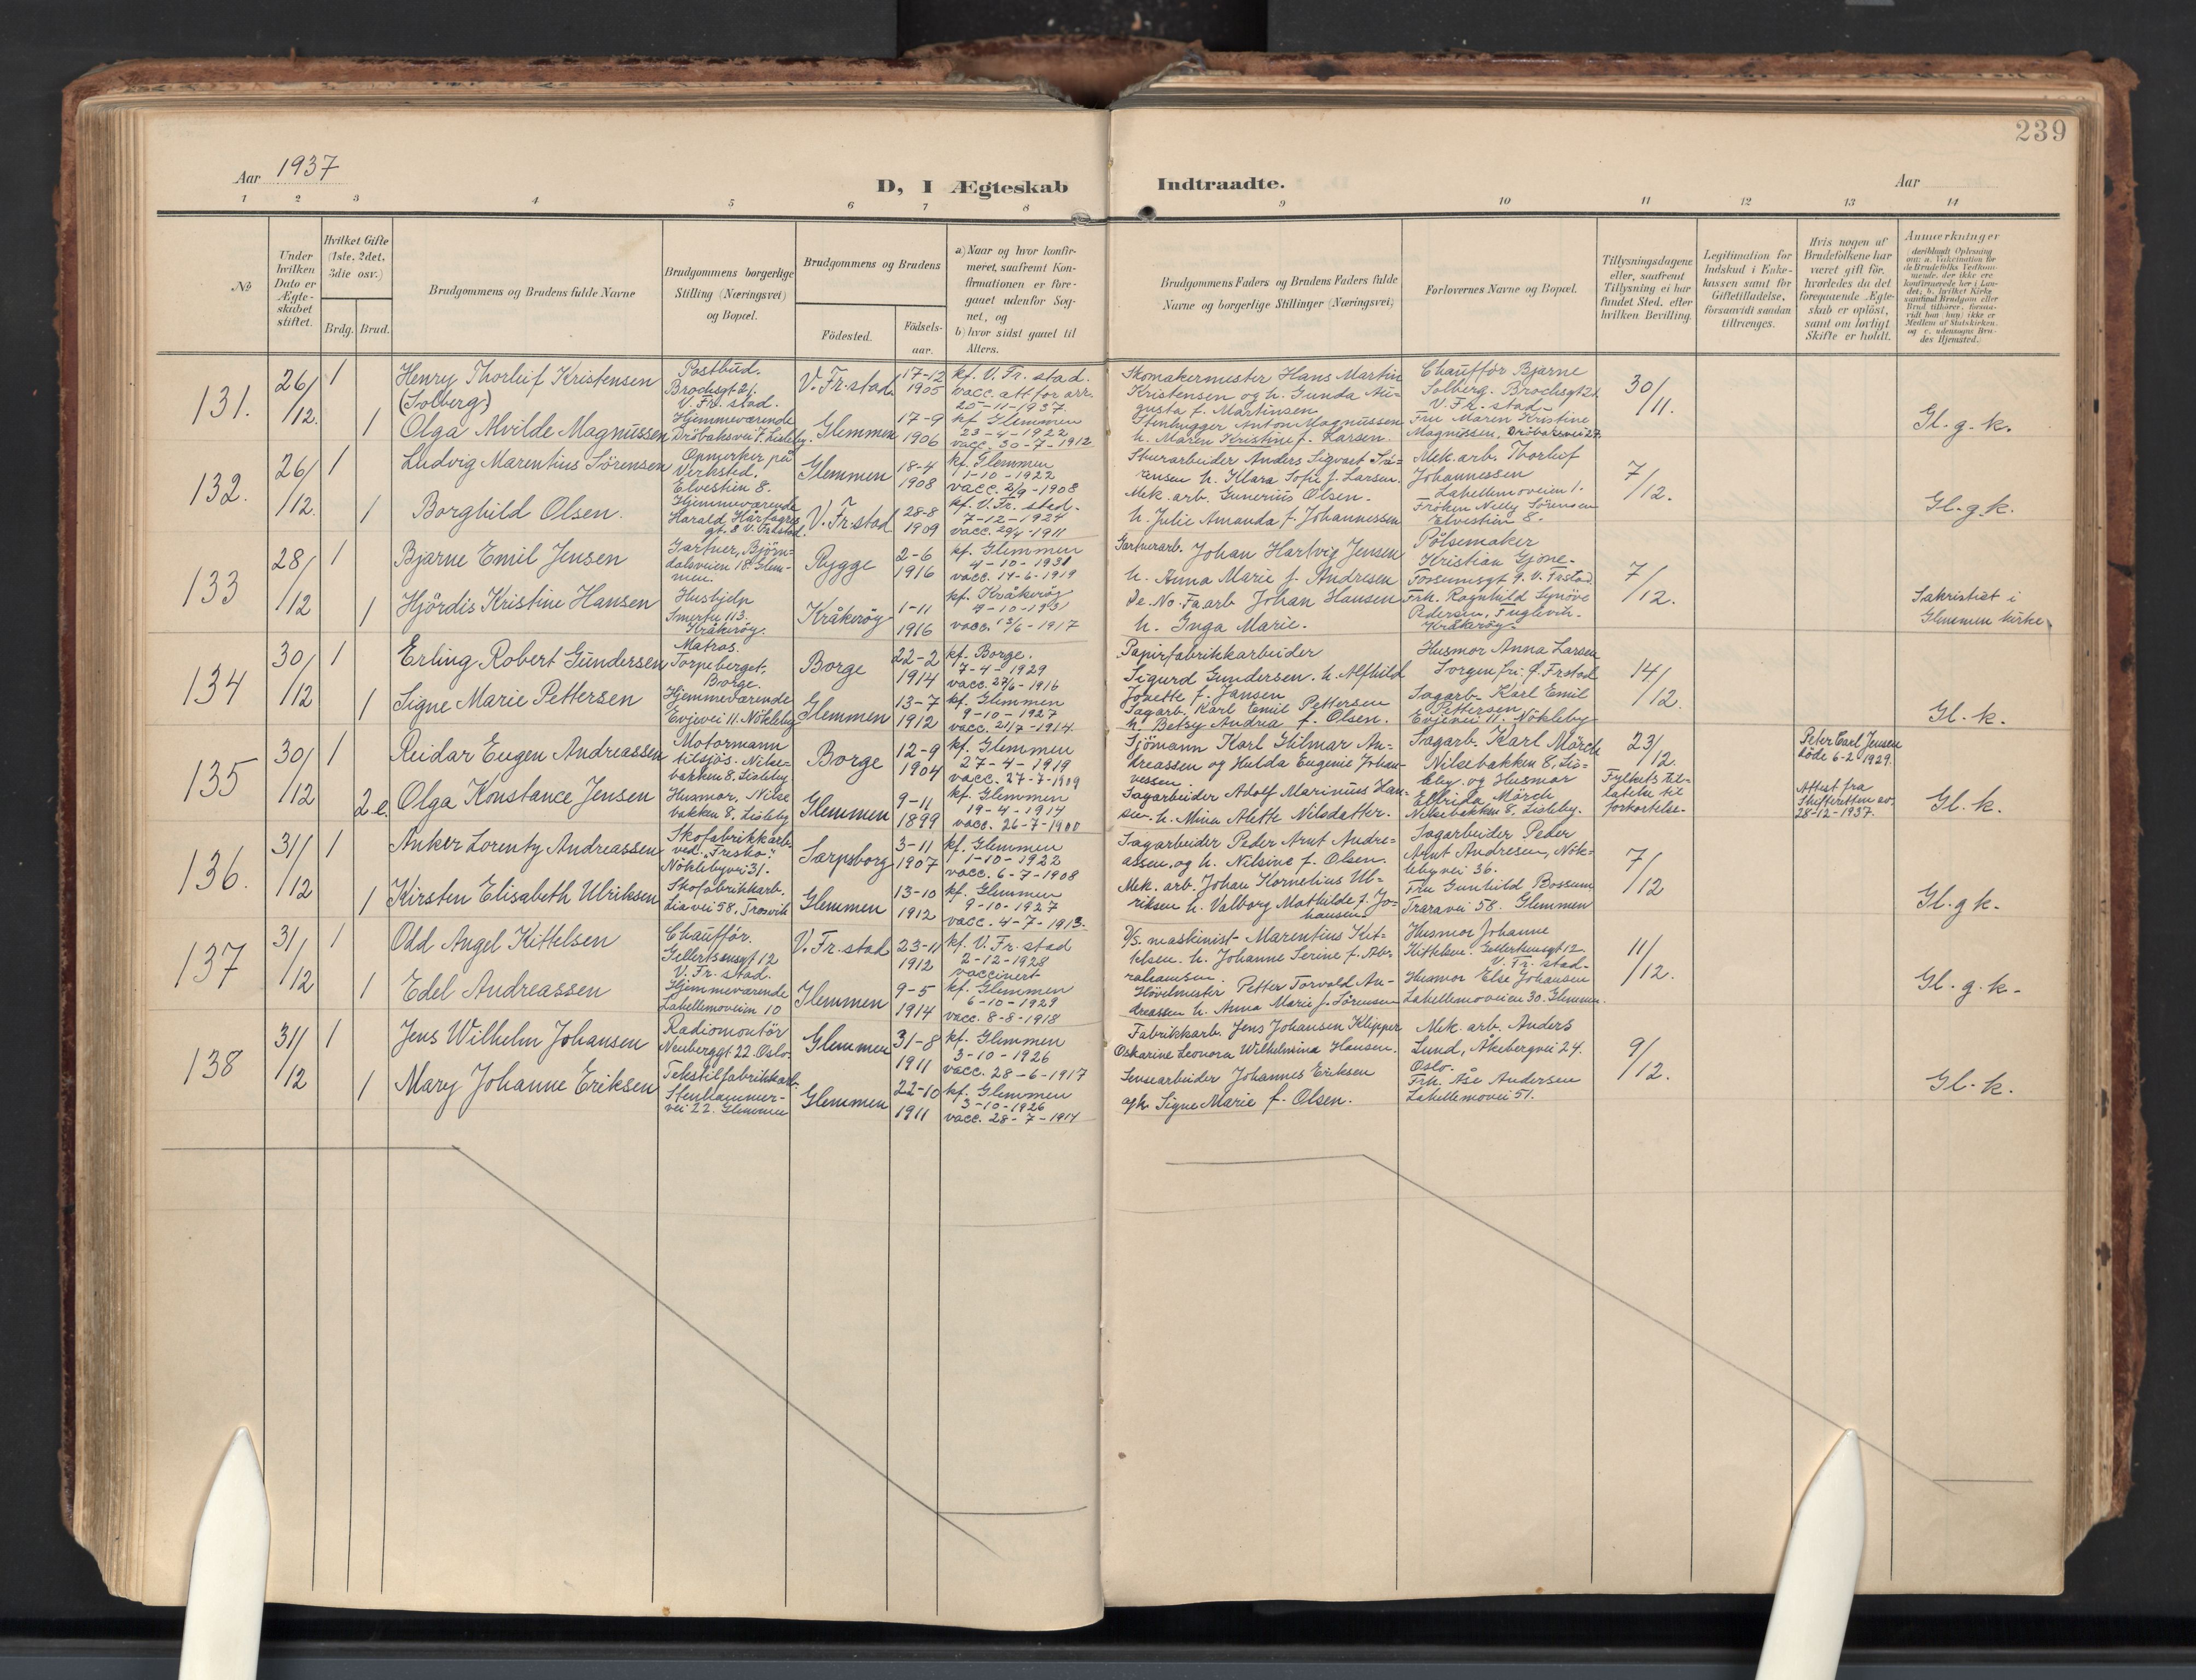 239
Aar 1937
D, I Ægteskab
Indtraadte.
Aar
1 2 3 4 5 6 7 8 9 10 11 12 13 14
No
Under
hvilken
Dato er
Ægte-
skabet
stiftet.
Hvilket Gifte
(1ste, 2det,
3die osv.)
Brdg. Brud.
Brudgommens og Brudens fulde Navne
Brudgommens borgerlige
Stilling (Næringsvei)
og Bopæl.
Brudgommens og Brudens
Födested.
Födsels-
aar.
a) Naar og hvor konfir-
meret, saafremt Kon-
firmationen er fore-
gaaet udenfor Sog-
net, og
b) hvor sidst gaaet til
Alters.
Brudgommens Faders og Brudens Faders fulde
Navne og borgerlige Stillinger (Næringsvei)
Forlovernes Navne og Bopæl.
Tillysningsdagene
eller, saafremt
Tillysning ei har
fundet Sted, efter
hvilken Bevilling.
Legitimation for
Indskud i Enke-
kassen samt for
Giftetilladelse,
forsaavidt saadan
tiltrænges.
Hvis nogen af
Brudefolkene har
været gift för,
hvorledes da det
foregaaende Ægte-
skab er oplöst,
samt om lovligt
Skifte er holdt.
Anmærkninger
131.
26/12.
1
Henry Thorleif Kristensen
(Solberg)
Postbud.
Brochsgt 21.
V. Fr. stad.
V. Fr. stad.
17-12
1905
kf. V. Fr. stad.
vacc. att for arr.
25-11-1937.
Skomakermester Hans Martin
Kristensen og h. Gunda Au-
gusta f. Martinsen
Chaufför Bjarne
Solberg. Brochsgt 21
V. Fr. stad
30/11.
1
Olga Alvilde Magnussen
Hjemmeværende
Dröbaksvei 7. Lisleby.
Glemmen
17-9
1906
kf Glemmen
23-4-1922
vacc. 30-7-1912
Stenhugger Anton Magnussen
h. Maren Kristine f. Larsen.
Fru Maren Kristine
Magnussen,
Gl. g. k.
132.
26/12.
1
Ludvig Marentius Sörensen
Opmerker på
Verksted.
Elvestien 8.
Glemmen
18-4
1908
kf. Glemmen
1-10-1922
vacc. 2/9-1908
Skurarbeider Anders Sigvart Sö-
rensen h. Klara Sofie f. Larsen.
Mek. arb. Thorleif
Johannessen
Labellemoveien 1.
7/12.
1
Borghild Olsen.
Hjemmeværende
Harald Hårfagres
gt. 8 V. Frstad.
V. Fr. stad
28-8
1909
kf. V. Fr. sted.
7-12-1924
vacc. 29/4-1911
Mek. arb. Gunerius Olsen.
h. Julie Amanda f. Johannessen
Fröken Nelly Sörensen
Elvestien 8.
Gl. g. k.
133
28/12
1
Bjarne Emil Jensen
Gartner, Björn-
dalsveien 18. Glem-
men.
Rygge
2-6
1916
kf. Glemmen
4-10-1931
vacc. 14-6-1919
Gartnerarb. Johan Hartvig Jensen
h. Anna Marie f. Andresen
Pölsemaker
Kristian Gjöne-
Fossumsgt 9. V. Frstad.
7/12.
1
Hjördis Kristine Hansen
Hushjelp
Smertu 113.
Kråkeröy.
Kråkeröy
1-11
1916
kf. Kråkeröy
4-10-1931
vacc. 12/6-1917
De. No. Fa. arb Johan Hansen
h. Inga Marie.
Frk. Ragnhild Synöve
Pedersen, Fuglevik.
Kråkeröy.
Sakristiet i
Glemmen kirke.
134
30/12
1
Erling Robert Gundersen
Matros.
Torpeberget.
Borge.
Borge
22-2
1914
kf. Borge.
7-4-1929
vacc. 27/6-1916
Papirfabrikkarbeider
Sigurd Gundersen. h. Alfhild
Josette f. Jansen
Husmor Anna Larsen
Sorgenfri. Ö. Frstad
14/12.
1
Signe Marie Pettersen
Hjemmeværende
Evjevei 11. Nökleby
Glemmen
13-7
1912
kf. Glemmen
9-10-1927
vacc. 21/7-1914.
Sagarb. Karl Emil Pettersen
h. Betsy Andrea f. Olsen.
Sagarb. Karl Emil
Pettersen
Evjevei 11. Nökleby
Gl. k.
135
30/12
1
Reidar Eugen Andreassen
Motormann
tilsjös. Nilse-
bakken 8. Lisleby
Borge
12-9
1904
kf. Glemmen
27-4-1919
vacc. 27-7-1909
Sjömann Karl Hilmar An-
dreassen og Hulda Eugenie Johan-
nessen
Sagarb. Karl Mörch
Nilsebakken 8, Lis-
leby. og Husmor
23/12.
Fylkets til-
latelse til
forkortelse.
Peter Carl Jensen
döde 6-2 1929.
Attest fra
Skifteretten av
28-12-1937.
2.e.
Olga Konstance Jensen
Husmor. Nilse
bakken 8. Lisleby
Glemmen
9-11
1899
kf. Glemmen
19-4-1914
vacc. 26-7-1900
Sagarbeider Adolf Marinius Han-
sen. h. Mina Alette Nilsdatter.
Elfrida Mörch
Nilsebakken 8. Lisleby.
Gl. k.
136.
31/12
1
Anker Lorentz Andreassen
Skofabrikkarb.
ved "Fresko".
Nöklebyvei 31.
Sarpsborg
3-11
1907
kf. Glemmen
1-10-1922
vacc. 6-7-1908
Sagarbeider Peder Arnt Andre-
assen, og h. Nilsine f. Olsen.
Sagarbeider Peder
Arnt Andresen, Nök-
lebyvei 36.
7/12
1
Kirsten Elisabeth Ulriksen
Skofabrikkarb.
Liavei 58, Trosvik
Glemmen
13-10
1912
kf. Glemmen
9-10-1927
vacc. 4-7-1913.
Mek. arb. Johan Kornelius Ul-
riksen h. Valborg Mathilde f. Jo-
hansen
Fru Gunhild Bossum
Traravei 58. Glemmen
Gl. g k.
137
31/12
1
Odd Angel Kittelsen
Chaufför.
Gellertsensgt 12
V. Fr. stad.
V. Fr. stad
23-11
1912
kf. V. Fr. stad
2-12-1928
vaccinert
D/S. maskinist Marentius Kit-
telsen. h. Johanne Serine f. Ab-
rahamsen
Husmor Johanne
Kittelsen. Gellertsensgt 12
V. Fr. stad.
11/12.
1
Edel Andreassen
Hjemmeværende
Labellemoveien 10
Glemmen
9-5
1914
kf. Glemmen
6-10-1929
vacc. 8-8-1918
Hövelmester Petter Torvald An-
dreassen h. Anna Marie f. Sörensen
Husmor Else Johansen
Labellemoveien 30. Glemmen.
Gl. g. k.
138
31/12
1
Jens Wilhelm Johansen
Radiomontör
Neuberggt 22. Oslo.
Glemmen
31-8
1911
kf. Glemmen
3-10-1926
vacc. 28-6-1917
Fabrikkarb. Jens Johansen Klipper
Oskarine Leonora Wilhelmina Hansen.
Mek. arb. Anders
Lund, Åkebergvei 24.
Oslo.
9/12.
1
Mary Johanne Eriksen
Tekstilfabrikkarb.
Stenhammer-
vei 22. Glemmen
Glemmen
22-10
1911
kf. Glemmen
3-10-1926
vacc. 28-7-1914
Sensearbeider Johannes Eriksen
ogh. Signe Marie f. Olsen.
Frk. Åse Andersen
Labellemovei 51.
Gl. k.